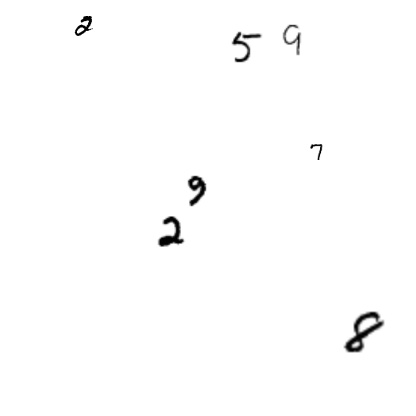 2
5 9
7
9
2
8